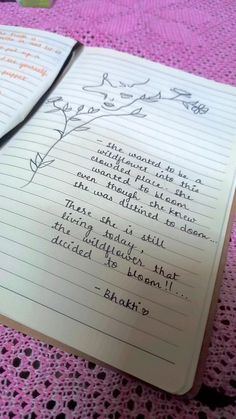 - She wanted to be a
wildflower into this
crowded place. She
wanted to bloom
even though she knew
she was distined to doom...
There she is still
living today,
the wildflower that
decided to bloom!!...
- Bhakti